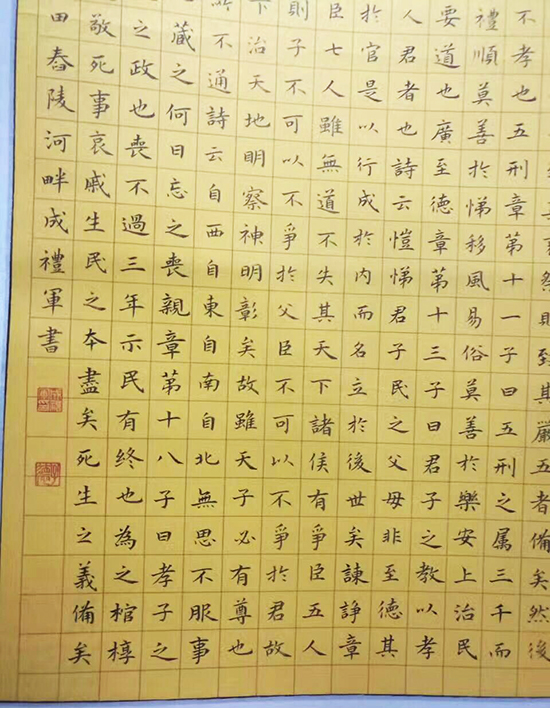 則致其嚴五者備矣然後
不孝也五刑章第十一子曰五刑之属三千而
禮順莫善於悌移風易俗莫善於樂安上治民
要道也廣至德章第十三子曰君子之教以孝
人君者也詩云愷悌君子民之父母非至德其
於官是以行成於內而名立於後世矣諫諍章
臣七人雖無道不失其天下諸侯有爭臣五人
則子不可以不爭於父臣不可以不爭於君故
下治天地明察神明彰矣故雖天子必有尊也
不通詩云自西自東自南自北無思不服事
藏之何日忘之喪親章第十八子曰孝子之
之政也喪不過三年示民有終也為之棺椁
敬死事哀戚生民之本盡矣死生之義備矣
田舂陵河畔成禮軍書